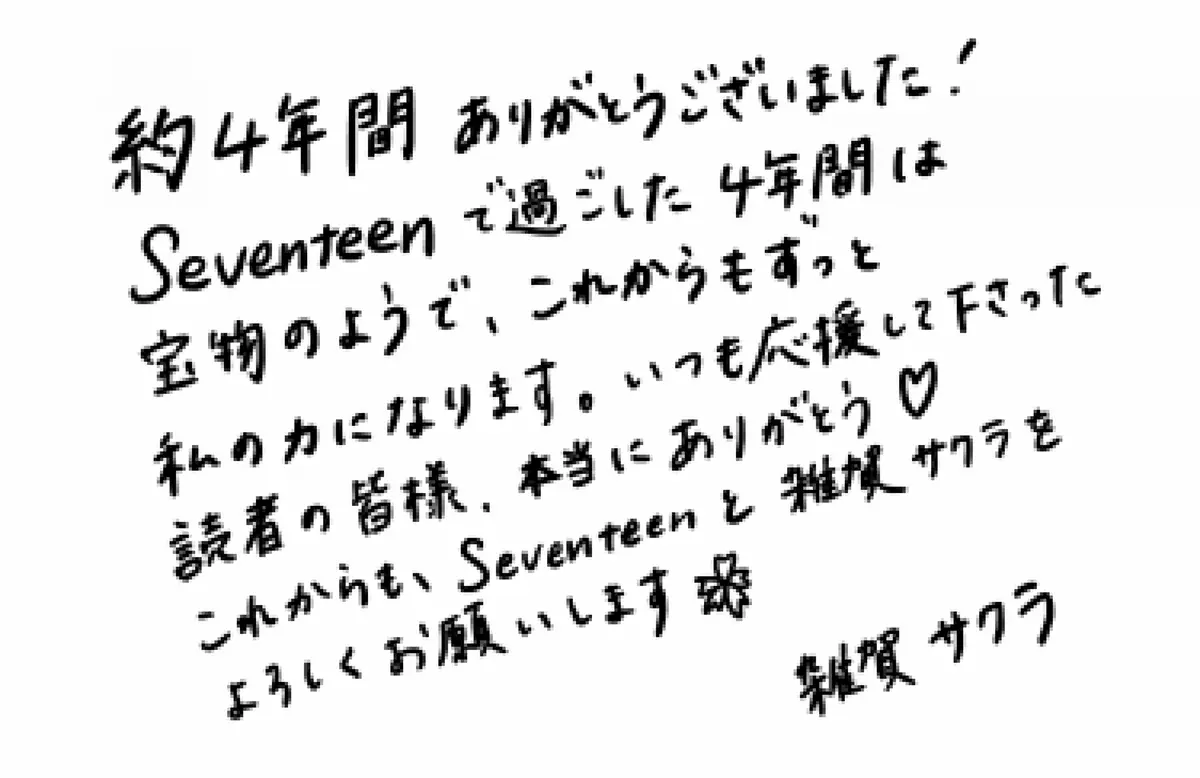 約4年間 ありがとうございました!
Seventeenで過ごした4年間は
宝物のようで、これからもずっと
私の力になります。いつも応援して下さった
読者の皆様、本当にありがとう♡
これからも、Seventeenと雑賀サクラを
よろしくお願いします
雑賀サクラ